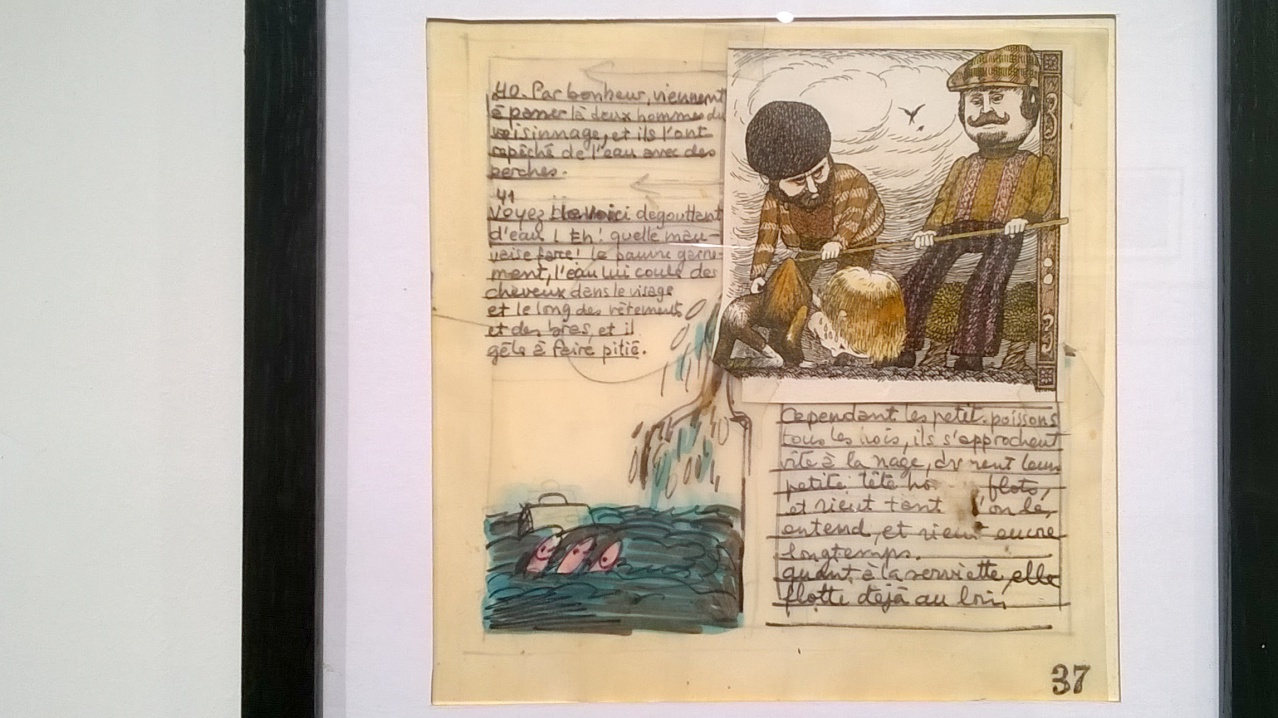 40. Par bonheur, viennent
à passer là deux hommes du
voisinnage, et ils l'ont
repêché de l'eau avec des
perches.
41
Voyez Le voici dégouttant
d'eau ! Eh! quelle mau-
vaise farce! le pauvre garne-
ment, l'eau lui coule des
cheveux dans le visage
et le long des vêtements
et des bras, et il
gèle à faire pitié.
Cependant les petit. poissons
tous les trois, ils s'approchent
vite à la nage, leur
petite tête flots,
et rient tant
entend, et rient encore
longtemps.
quant à la serviette, elle
flotte déjà au loin
37